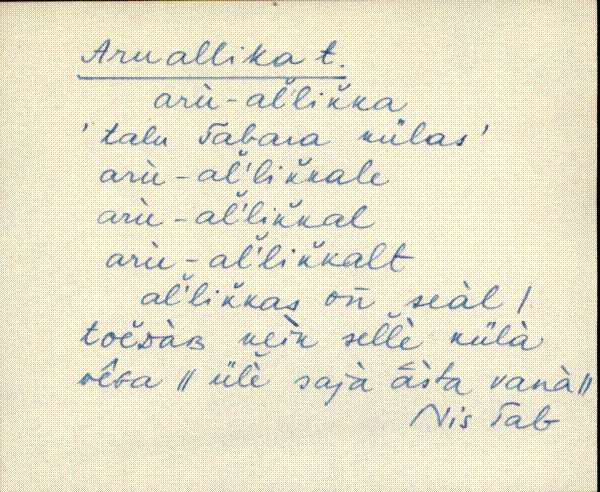 Aruallika t.
arù-al̆'lik̆ka
'talu Tabara külas'
arù-al̆'lik̆kale
arù-al̆'lik̆kal
arù-al̆'lik̆kalt
al̆'lik̆kas on̄ seàl /
kein sel̆lè külà
// ülè sajà āsta vanà //
Nis Tab